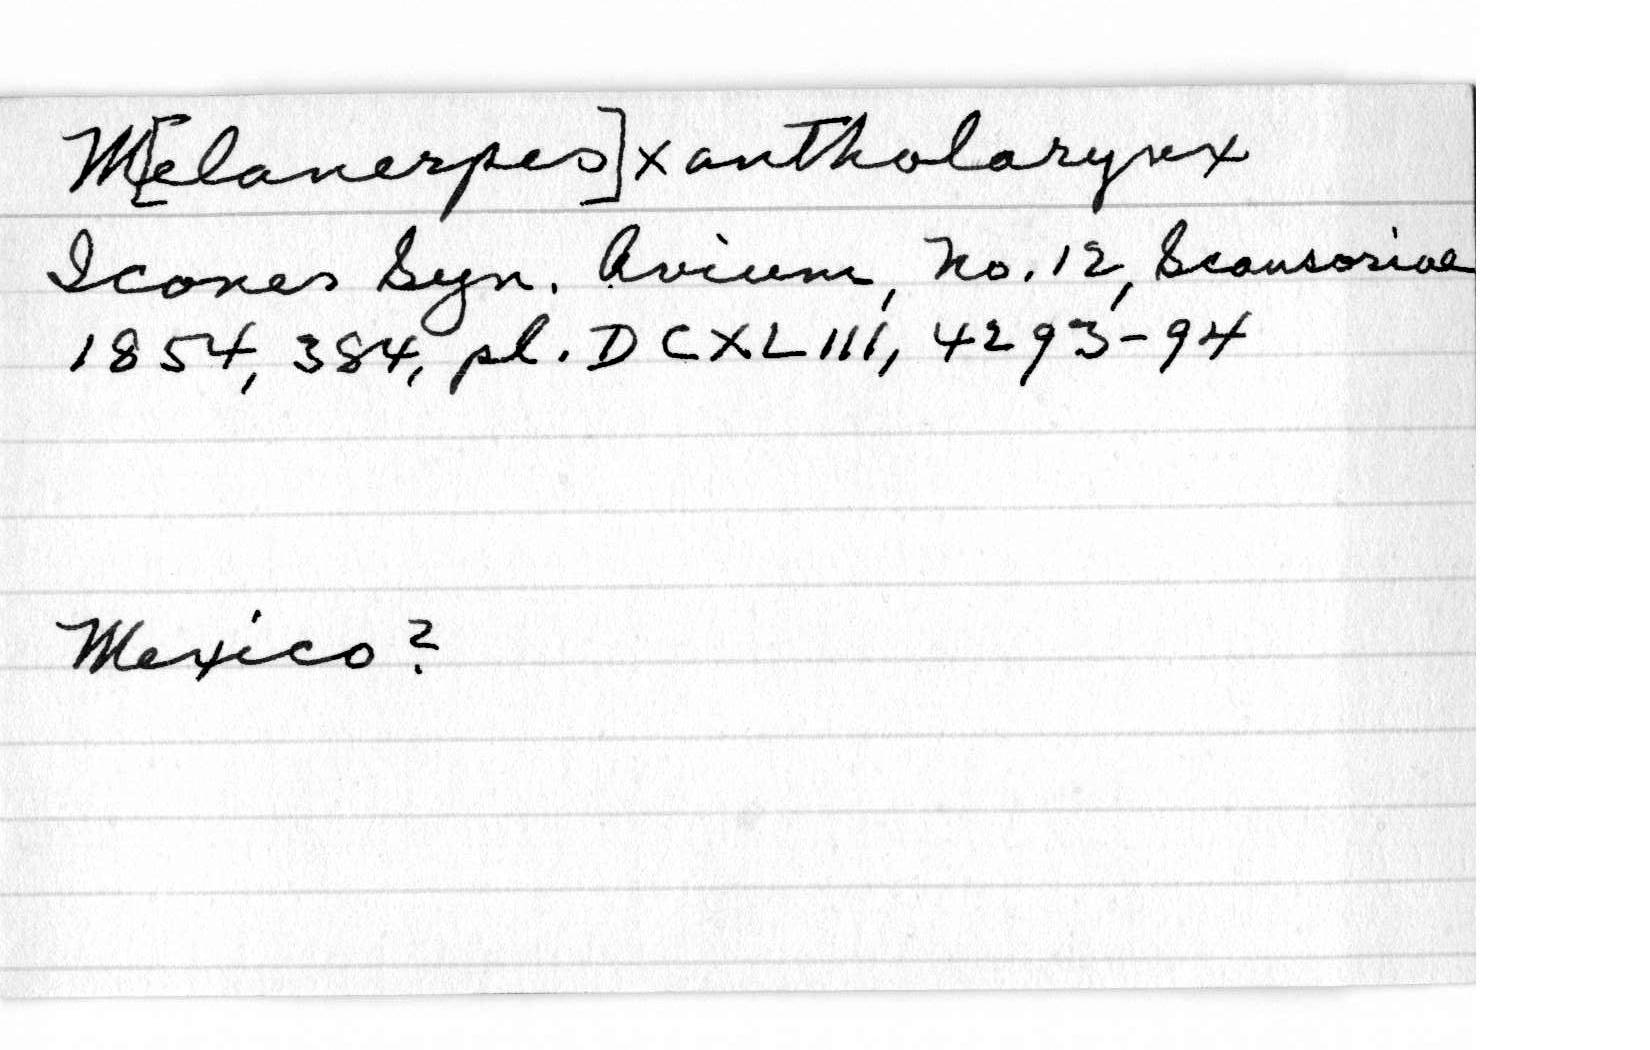 M[elanerpes] xantholarynx
Icones Syn. Avium, No. 12, Scansoriae
1854, 384, pl. DCXLIII, 4293-94
Mexico?